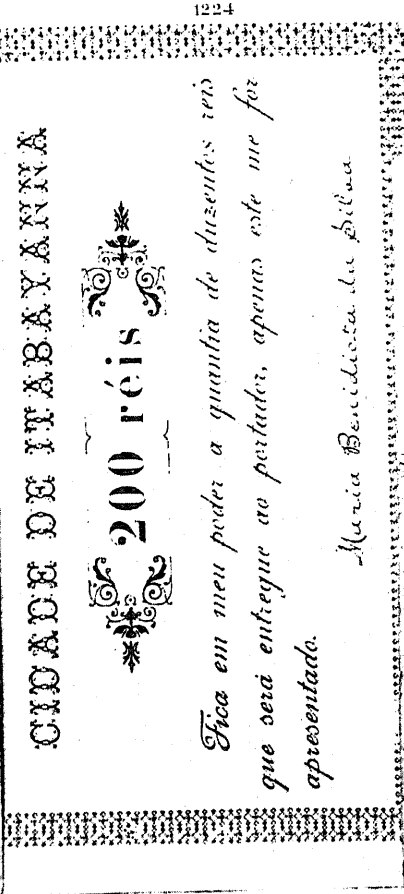 1224
CIDADE DE ITABAYANNA
200 réis
Fica em meu poder a quantia de duzentos reis
que será entregue ao portador, apenas este me for
apresentado.
Maria Benidicta da Silva